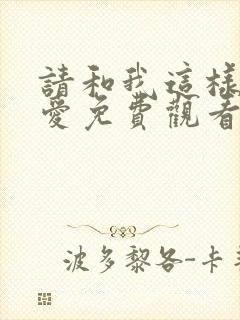 請和我這樣
愛免費觀看
波多黎各-卡